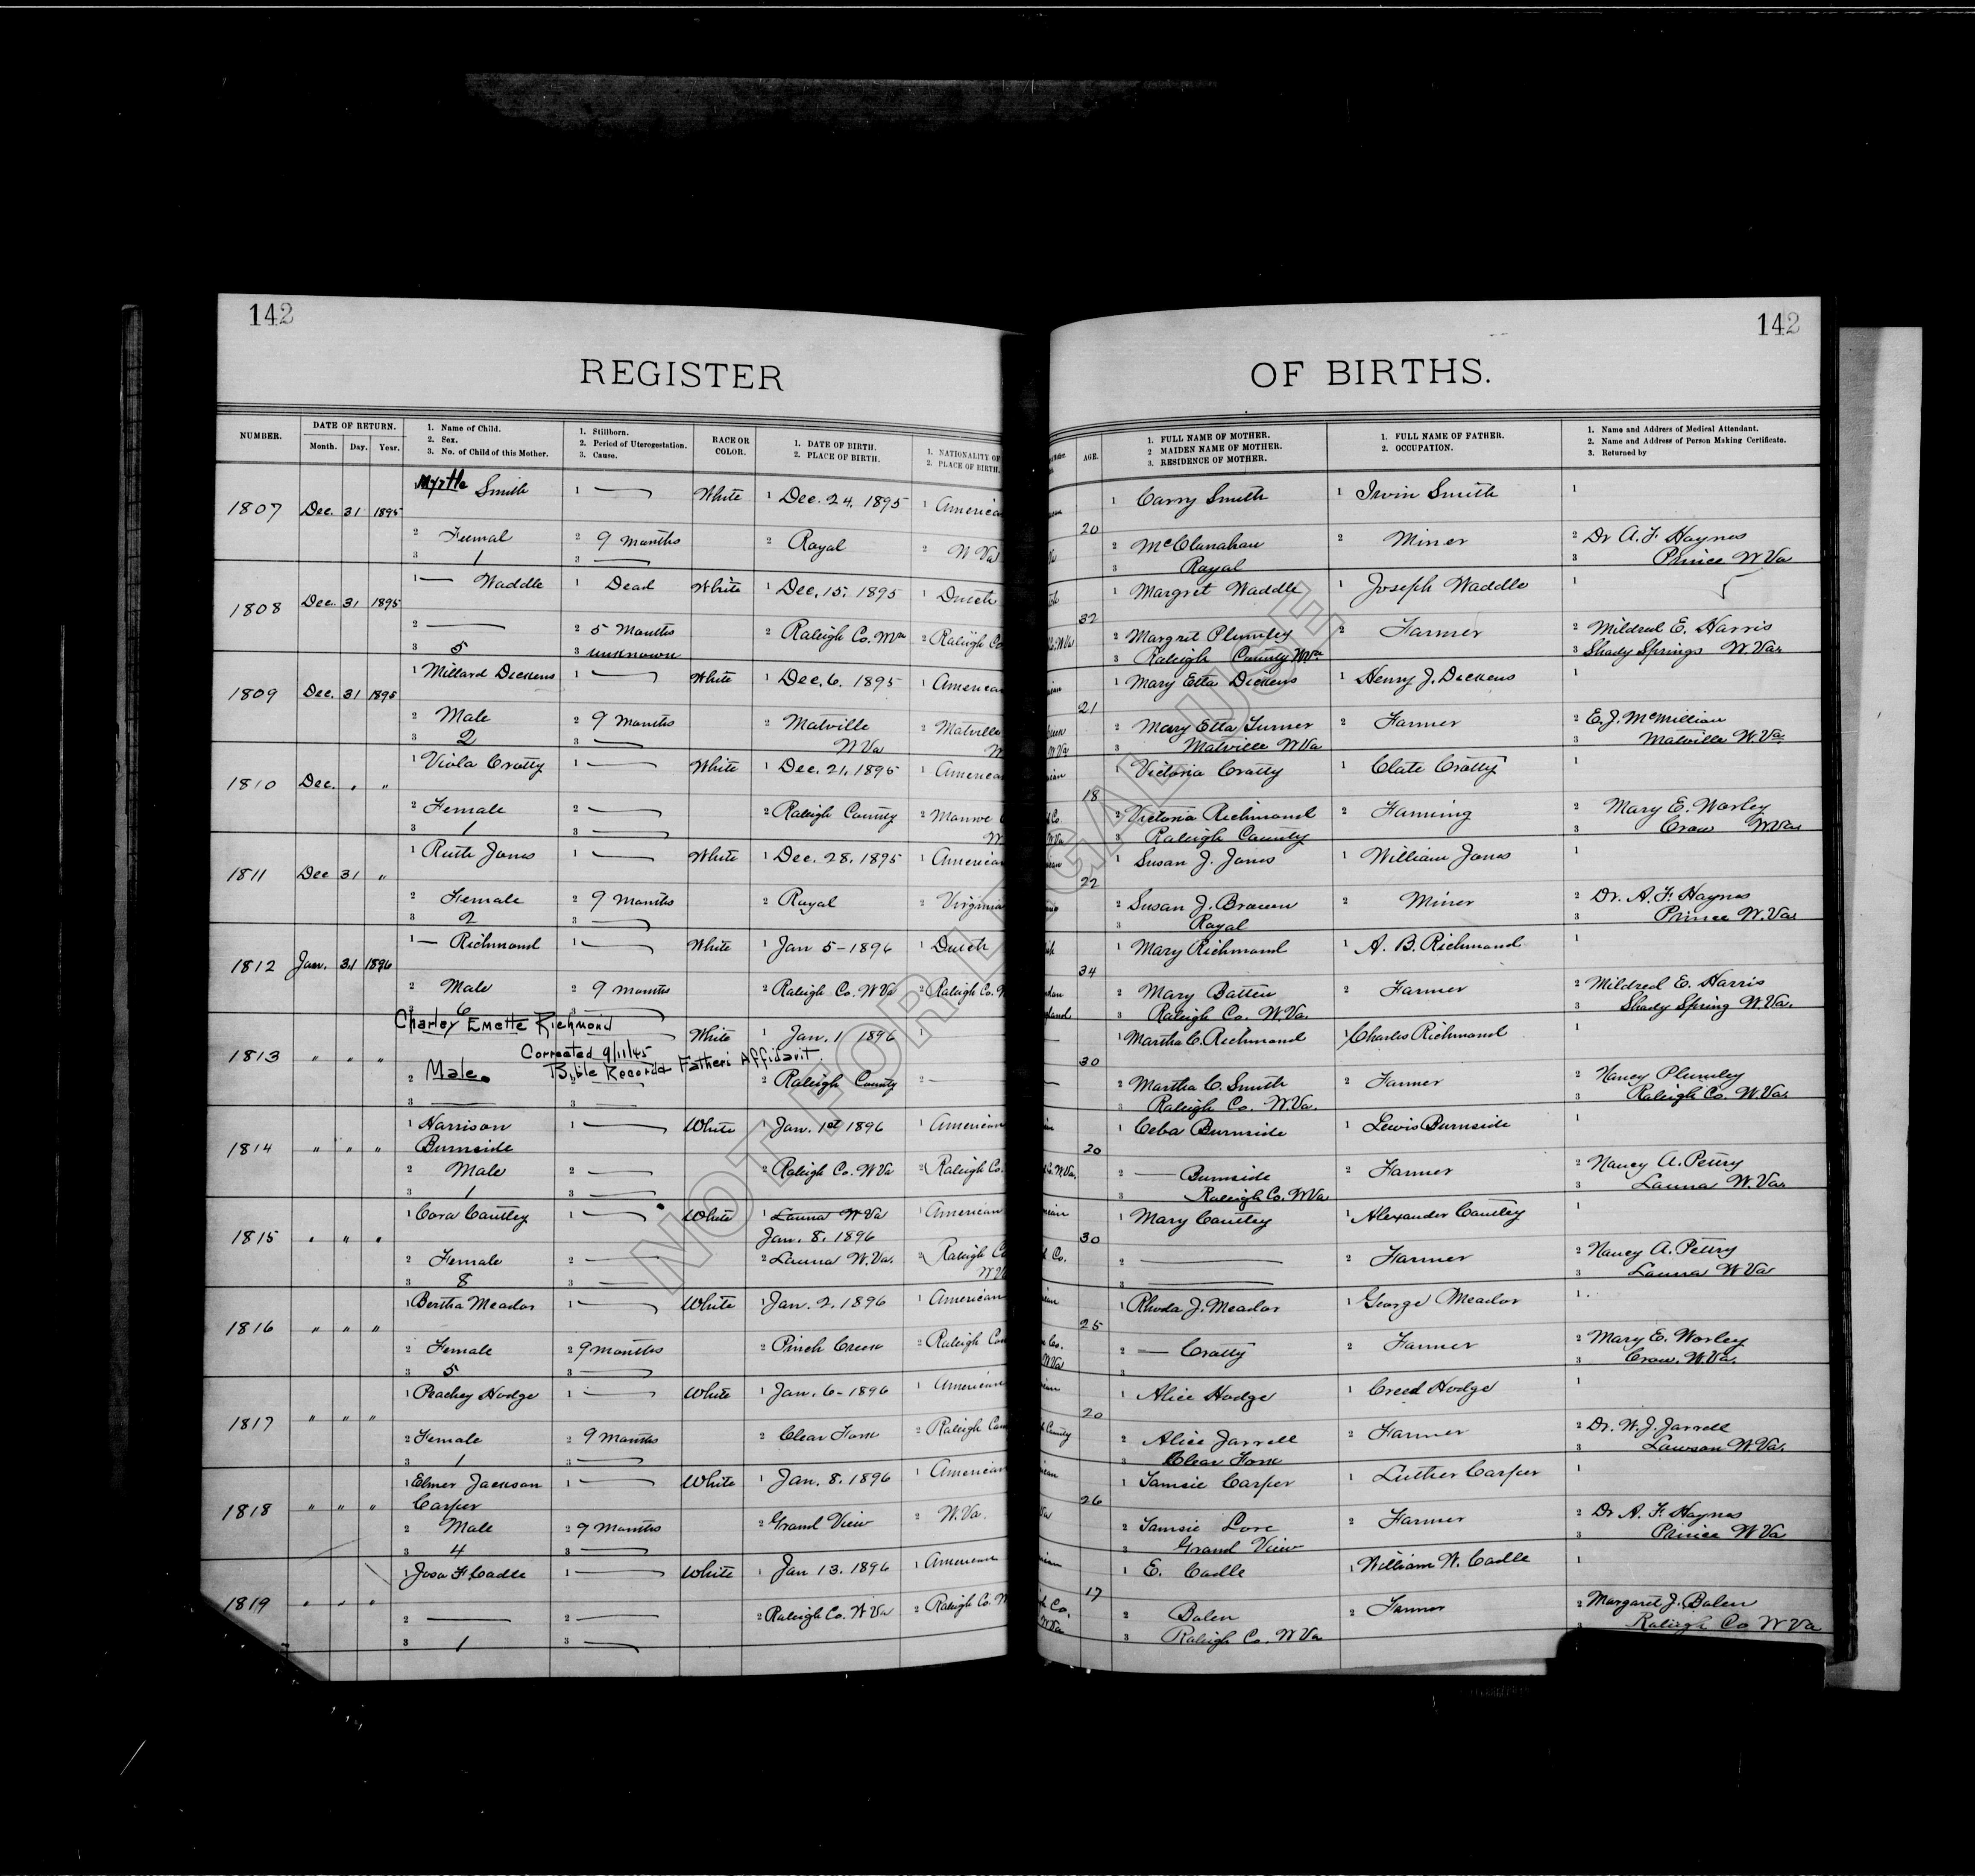 142
142
REGISTER
OF BIRTHS.
NUMBER.
DATE OF RETURN.
Month. Day. Year.
1. Name of Child.
2. Sex.
3. No. of Child of this Mother.
1. Stillborn.
2. Period of Uterogestation.
3. Cause.
RACE OR COLOR.
1. DATE OF BIRTH.
2. PLACE OF BIRTH.
1. NATIONALITY OF
2. PLACE OF BIRTH.
AGE.
1. FULL NAME OF MOTHER.
2 MAIDEN NAME OF MOTHER.
3. RESIDENCE OF MOTHER.
1. FULL NAME OF FATHER.
2. OCCUPATION.
1. Name and Address of Medical Attendant.
2. Name and Address of Person Making Certificate.
3. Returned by
1807 Dec. 31 1895 Myrtle Smith 1 — White 1 Dec. 24. 1895 1 America 20 1 Carry Smith 1 Irvin Smith 1
2 Femal 2 9 months 2 Royal 2 W Va 2 McClanahan 2 Miner 2 Dr A. F. Haynes
3 1 3 — 3 Royal 3 Prince W Va
1808 Dec. 31 1895 1 — Waddle 1 Dead White 1 Dec. 15. 1895 1 Dutch 32 1 Margret Waddle 1 Joseph Waddle 1
2 — 2 5 Months 2 Raleigh Co. W Va 2 Raleigh Co 2 Margret Plumley 2 Farmer 2 Mildred E. Harris
3 5 3 unknown 3 Raleigh County W Va 3 Shady Springs W. Va.
1809 Dec. 31 1895 1 Millard Dickens 1 — White 1 Dec. 6. 1895 1 America 21 1 Mary Etta Dickens 1 Henry J. Dickens 1
2 Male 2 9 Months 2 Matville 2 Matville 2 Mary Etta Turner 2 Farmer 2 E. J. McMillian
3 2 3 — W Va W 3 Matville W Va 3 Matville W. Va.
1810 Dec. " " 1 Viola Cratty 1 — White 1 Dec. 21. 1895 1 America 18 1 Victoria Cratty 1 Clate Cratty 1
2 Female 2 — 2 Raleigh County 2 Monroe 2 Victoria Richmond 2 Farming 2 Mary E. Worley
3 1 3 — W 3 Raleigh County 3 Crow W Va
1811 Dec 31 " 1 Ruth Jones 1 — White 1 Dec. 28. 1895 1 America 22 1 Susan J. Jones 1 William Jones 1
2 Female 2 9 months 2 Royal 2 Virginia 2 Susan J. Brown 2 Miner 2 Dr. A. F. Haynes
3 2 3 — 3 Royal 3 Prince W. Va
1812 Jan. 31 1896 1 — Richmond 1 — White 1 Jan 5 - 1896 1 Dutch 34 1 Mary Richmond 1 A. B. Richmond 1
2 Male 2 9 months 2 Raleigh Co. W Va 2 Raleigh Co. W 2 Mary Batten 2 Farmer 2 Mildred E. Harris
3 6 3 — 3 Raleigh Co. W. Va. 3 Shady Spring W. Va.
1813 " " " Charley Emette Richmond White 1 Jan. 1 1896 1 — 30 1 Martha C. Richmond 1 Charles Richmond 1
Corrected 9/11/45
Bible Record & Fathers Affidavit.
2 Male. 2 Raleigh County 2 — 2 Martha C. Smith 2 Farmer 2 Nancy Plumley
3 — 3 — 3 Raleigh Co. W. Va. 3 Raleigh Co. W. Va.
1814 " " " 1 Harrison Burnside 1 — White 1 Jan. 1st 1896 1 American 20 1 Celia Burnside 1 Lewis Burnside 1
2 Male 2 — 2 Raleigh Co. W Va 2 Raleigh Co. 2 — Burnside 2 Farmer 2 Nancy A. Petry
3 1 3 — 3 Raleigh Co. W Va 3 Launa W. Va.
1815 " " " 1 Cora Cantley 1 — White 1 Launa W Va 1 American 30 1 Mary Cantley 1 Alexander Cantley 1
Jan. 8. 1896
2 Female 2 — 2 Launa W. Va. 2 Raleigh Co 2 — 2 Farmer 2 Nancy A. Petry
3 8 3 — W Va 3 — 3 Launa W Va
1816 " " " 1 Bertha Meador 1 — White 1 Jan. 2. 1896 1 American 25 1 Rhoda J. Meador 1 George Meador 1
2 Female 2 9 months 2 Pinch Creek 2 Raleigh Cou 2 — Cratty 2 Farmer 2 Mary E. Worley
3 5 3 — 3 3 Crow, W. Va.
1817 " " " 1 Peachey Hodge 1 — White 1 Jan. 6 - 1896 1 American 20 1 Alice Hodge 1 Creed Hodge 1
2 Female 2 9 Months 2 Clear Fork 2 Raleigh Cou 2 Alice Jarrell 2 Farmer 2 Dr. W. J. Jarrell
3 1 3 — 3 Clear Fork 3 Lawson W. Va.
1818 " " " 1 Elmer Jackson Carper 1 — White 1 Jan. 8. 1896 1 American 26 1 Tamsie Carper 1 Luther Carper 1
2 Male 2 9 Months 2 Grand View 2 W. Va. 2 Tamsie Lore 2 Farmer 2 Dr A. F. Haynes
3 4 3 — 3 Grand View 3 Prince W Va
1819 " " " 1 F. Cadle 1 — White 1 Jan 13. 1896 1 American 17 1 E. Cadle 1 William W. Cadle 1
2 — 2 — 2 Raleigh Co. W Va 2 Raleigh Co. W 2 Bolen 2 Farmer 2 Margaret J. Bolen
3 1 3 — 3 Raleigh Co. W Va 3 Raleigh Co W Va
NOT FOR LEGAL USE